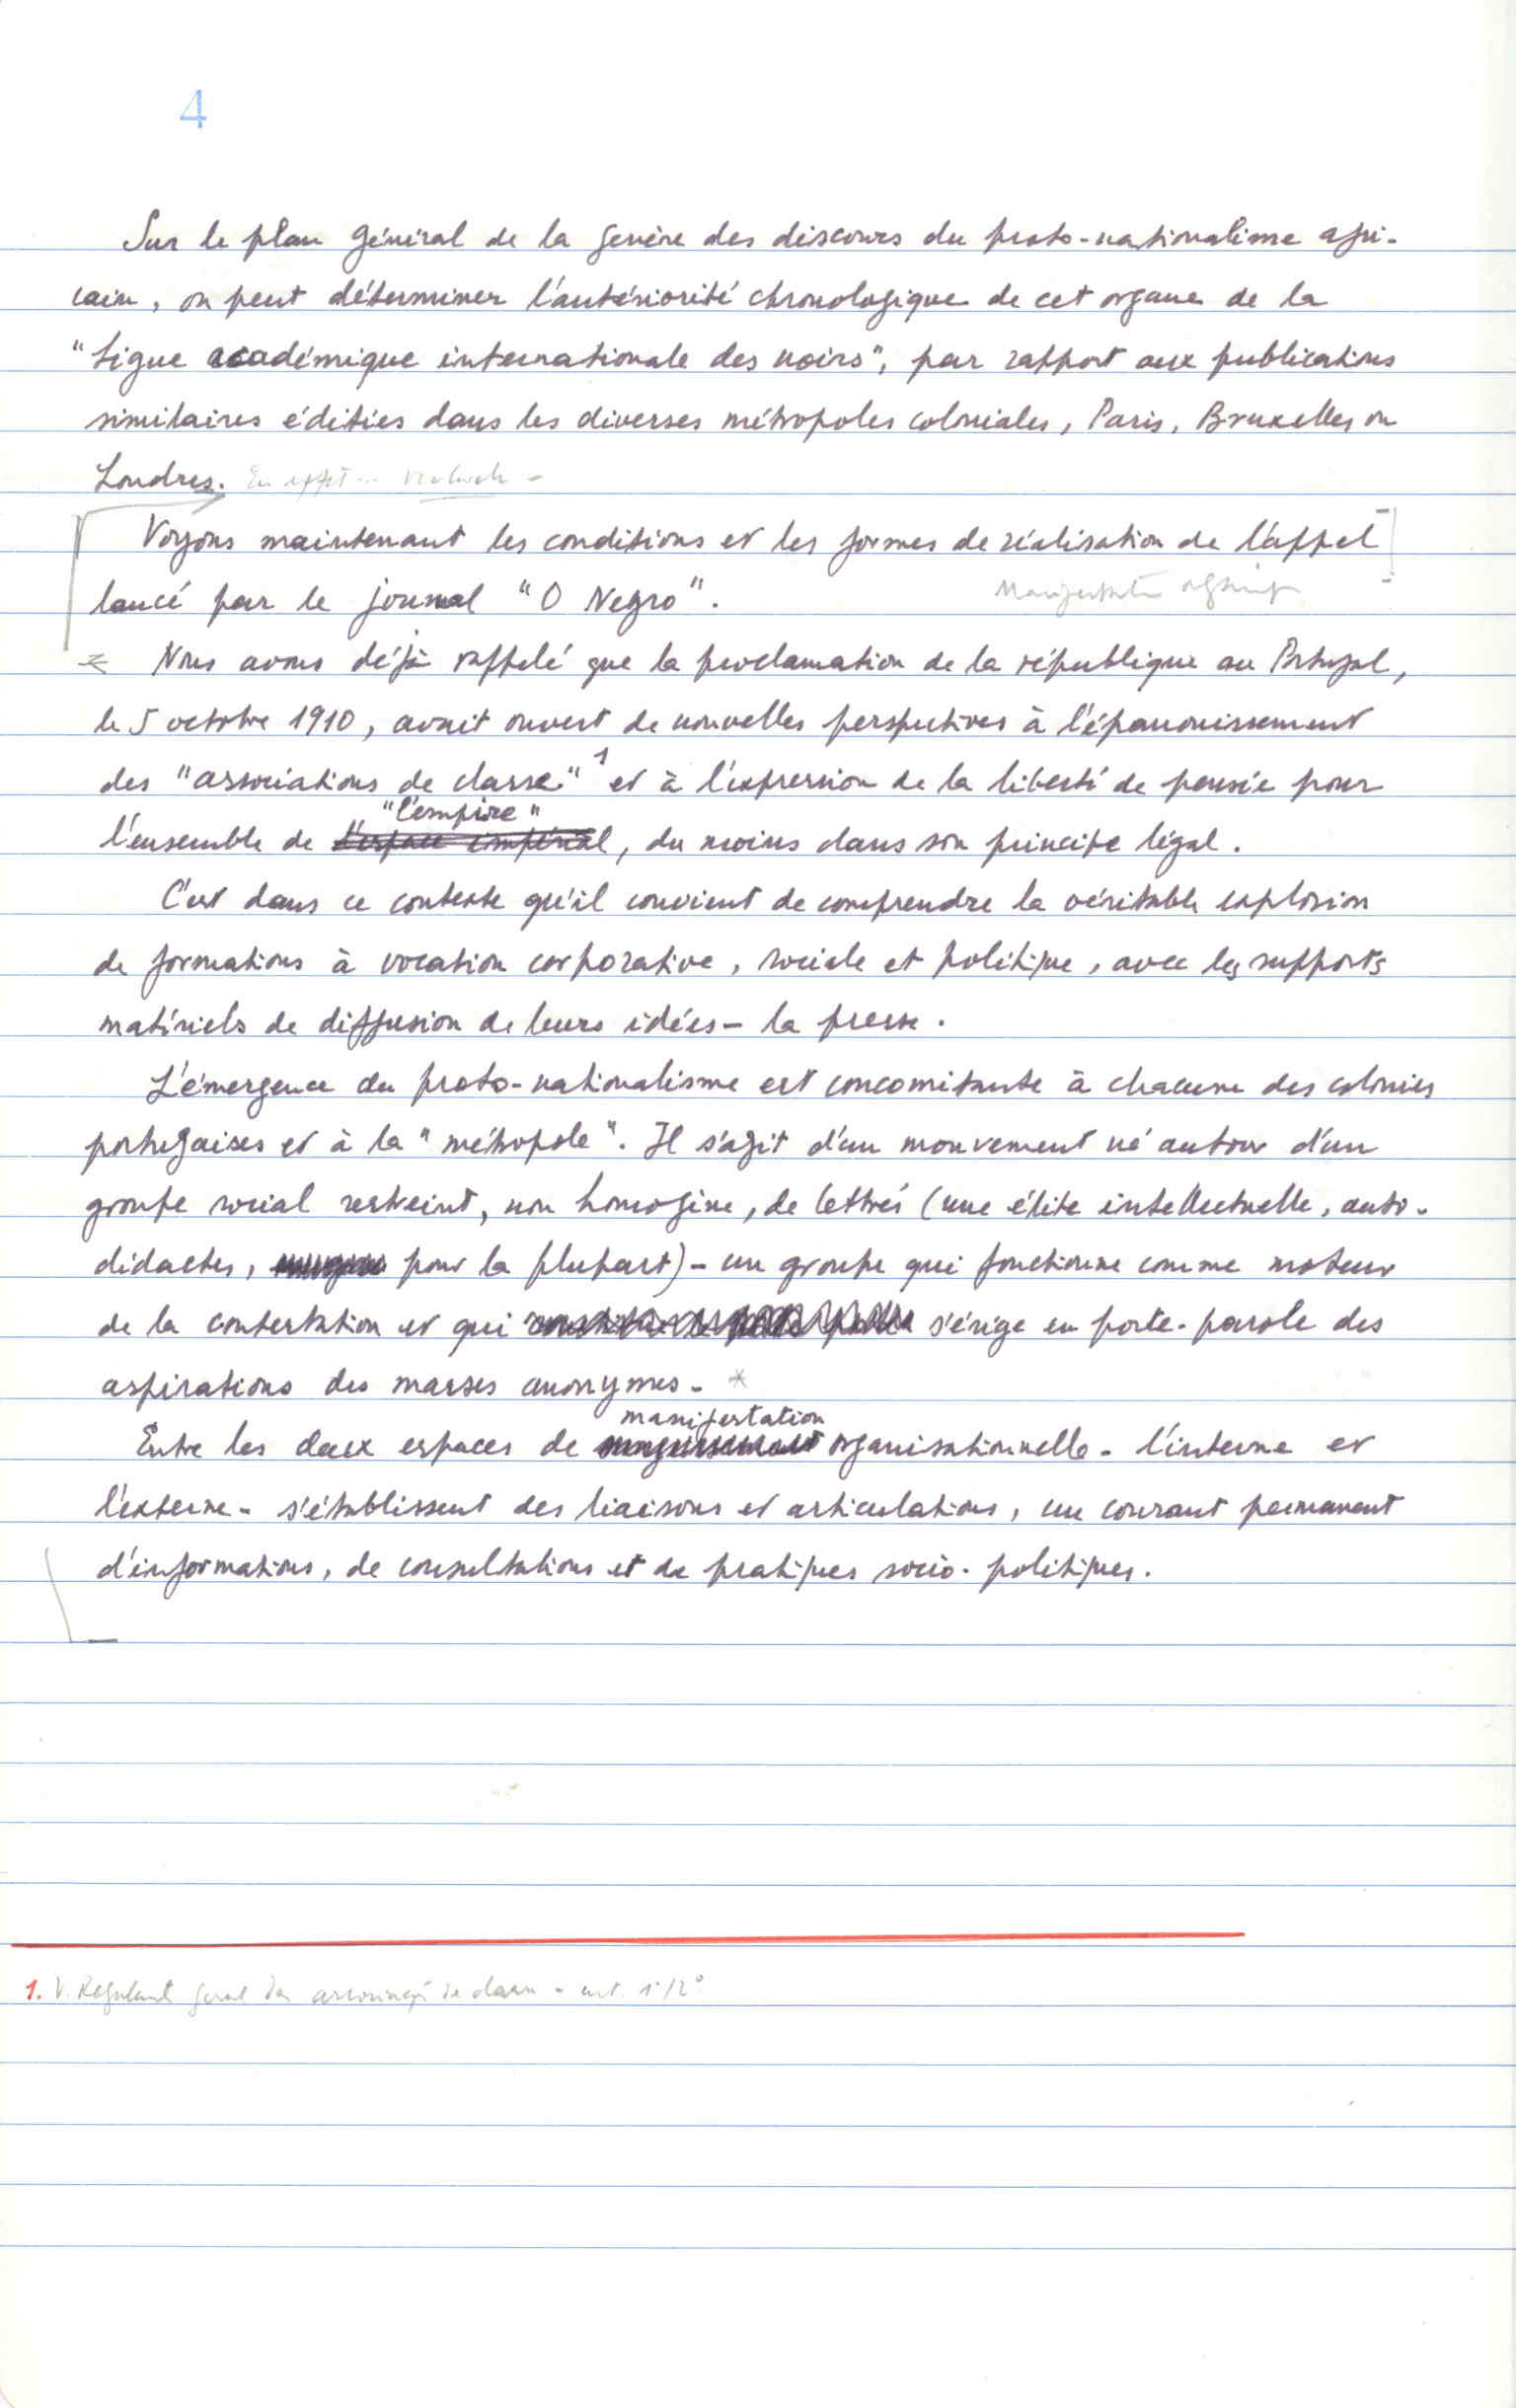 4
Sur le plan général de la genèse des discours du proto-nationalisme afri-
cain, on peut déterminer l'antériorité chronologique de cet organe de la
"Ligue académique internationale des noirs", par rapport aux publications
similaires éditées dans les diverses métropoles coloniales, Paris, Bruxelles ou
Londres. En effet...
Voyons maintenant les conditions et les formes de réalisation de l'appel
lancé par le journal "O Negro".
* Nous avons déjà rappelé que la proclamation de la république au Portugal,
le 5 octobre 1910, avait ouvert de nouvelles perspectives à l'épanouissement
des "associations de classe"1 et à l'expression de la liberté de pensée pour
"l'empire"
l'ensemble de l'espace impérial, du moins dans son principe légal.
C'est dans ce contexte qu'il convient de comprendre la véritable explosion
de formations à vocation corporative, sociale et politique, avec les supports
matériels de diffusion de leurs idées - la presse.
L'émergence du proto-nationalisme est concomitante à chacune des colonies
portugaises et à la "métropole". Il s'agit d'un mouvement né autour d'un
groupe social restreint, non homogène, de lettrés (une élite intellectuelle, auto-
didactes, pour la plupart) - un groupe qui fonctionne comme moteur
de la contestation et qui s'érige en porte-parole des
aspirations des masses anonymes. *
manifestation
Entre les deux espaces de organisationnelle - l'interne et
l'externe - s'établissent des liaisons et articulations, un courant permanent
d'informations, de consultations et de pratiques socio-politiques.
1. V. geral das de - art. 1º/2º